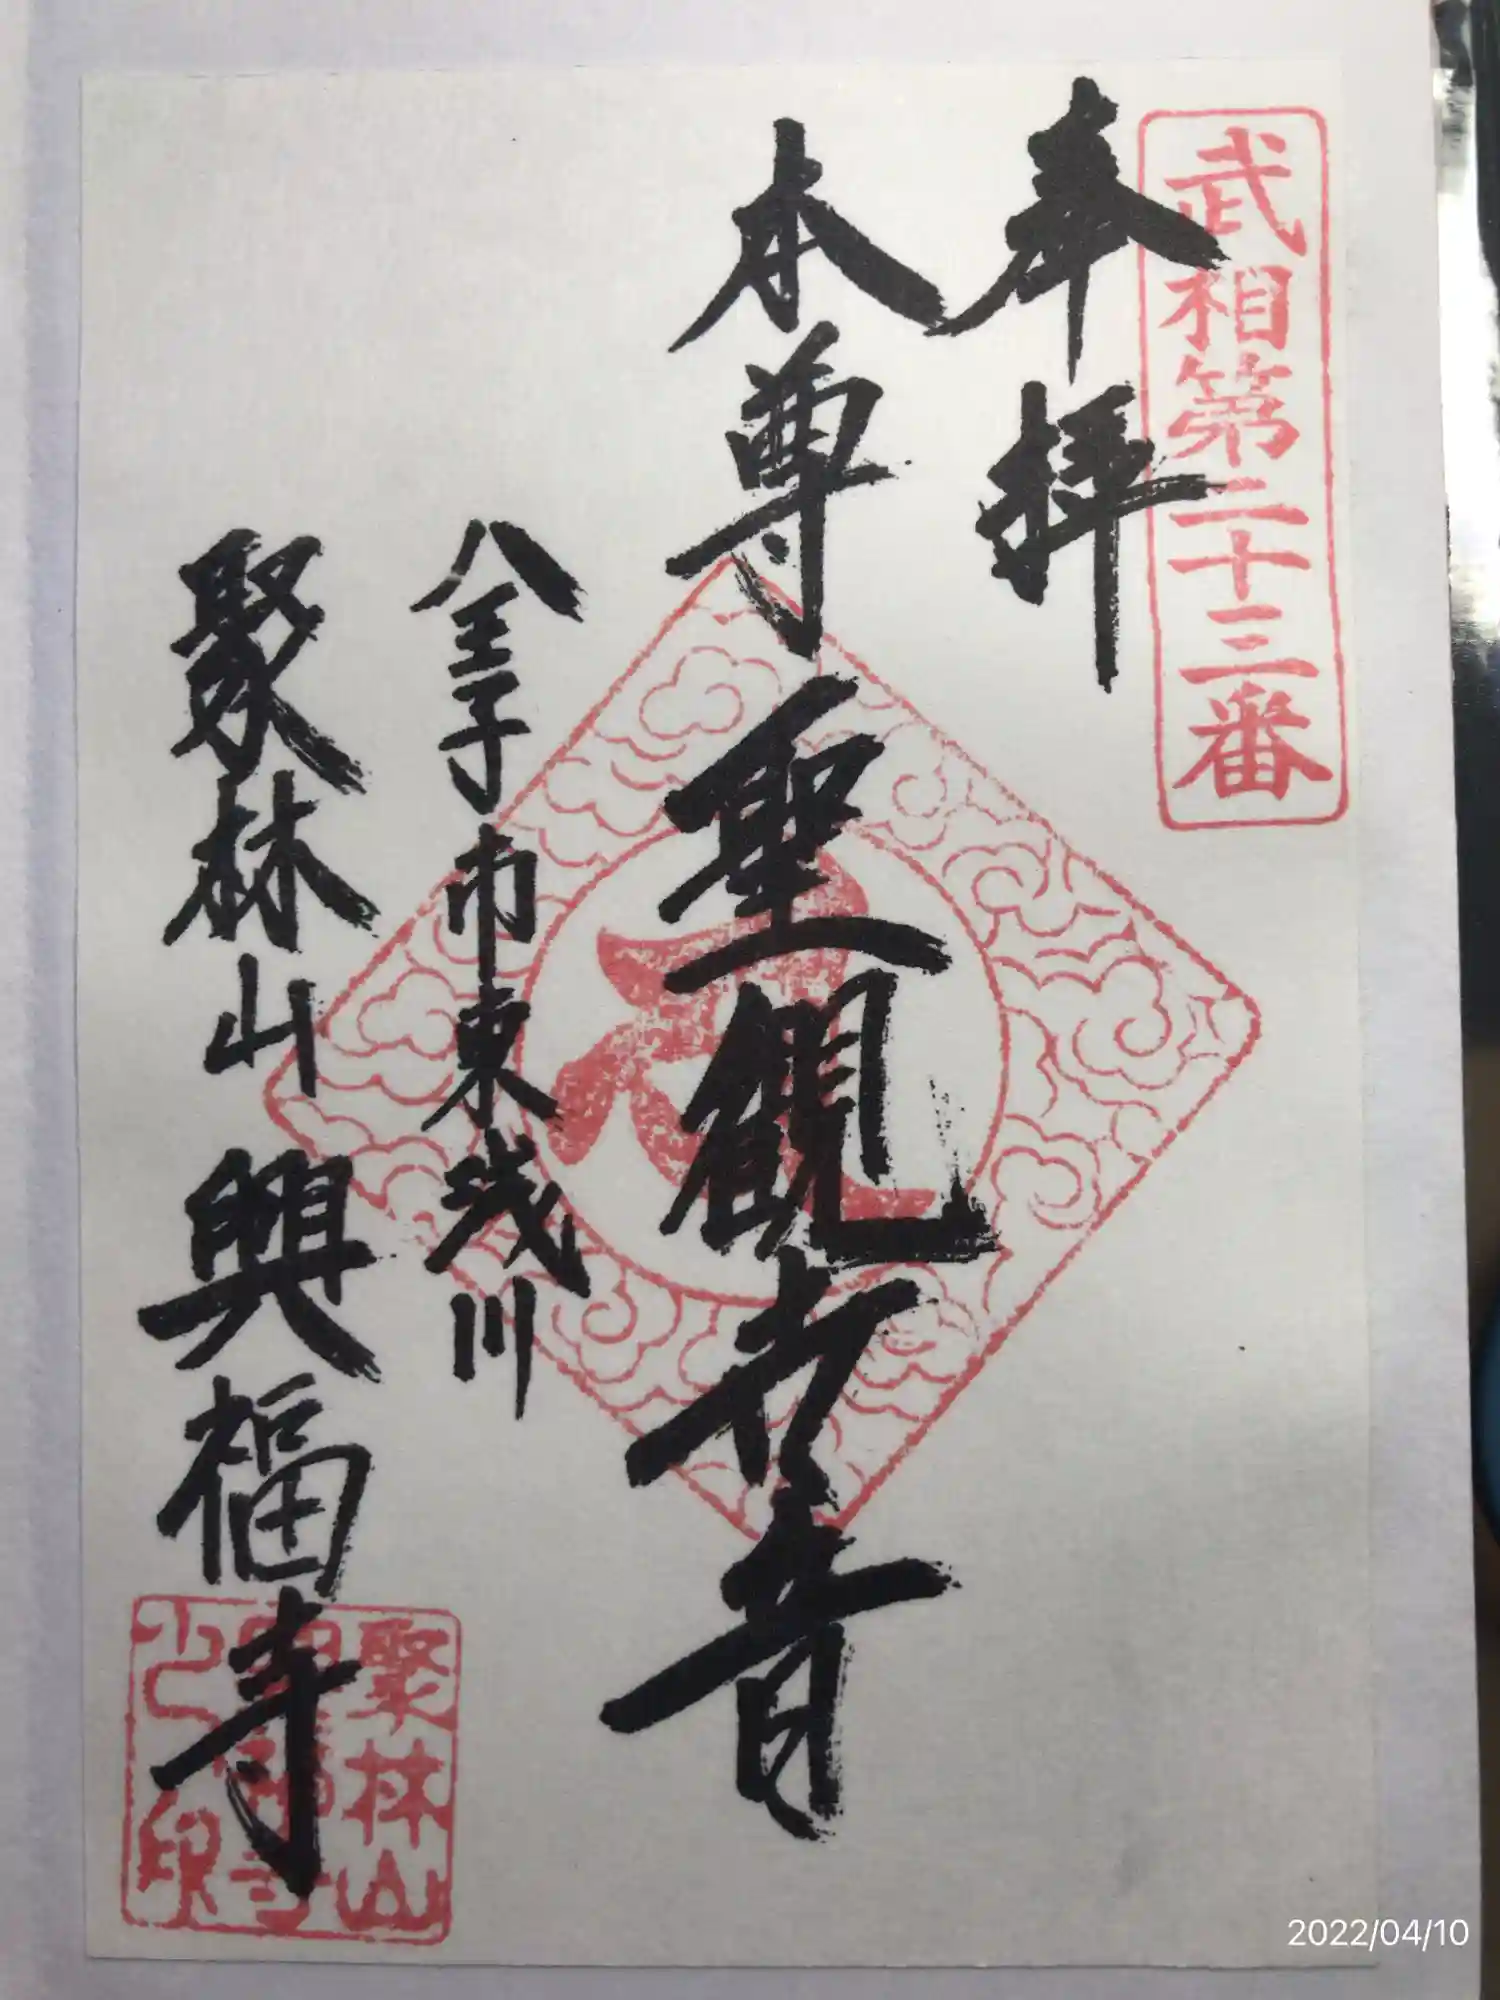 武相第二十三番
奉拝
本尊 聖観世音
八王子市東浅川
聚林山 興福寺
聚林山
興福寺
之印
2022/04/10